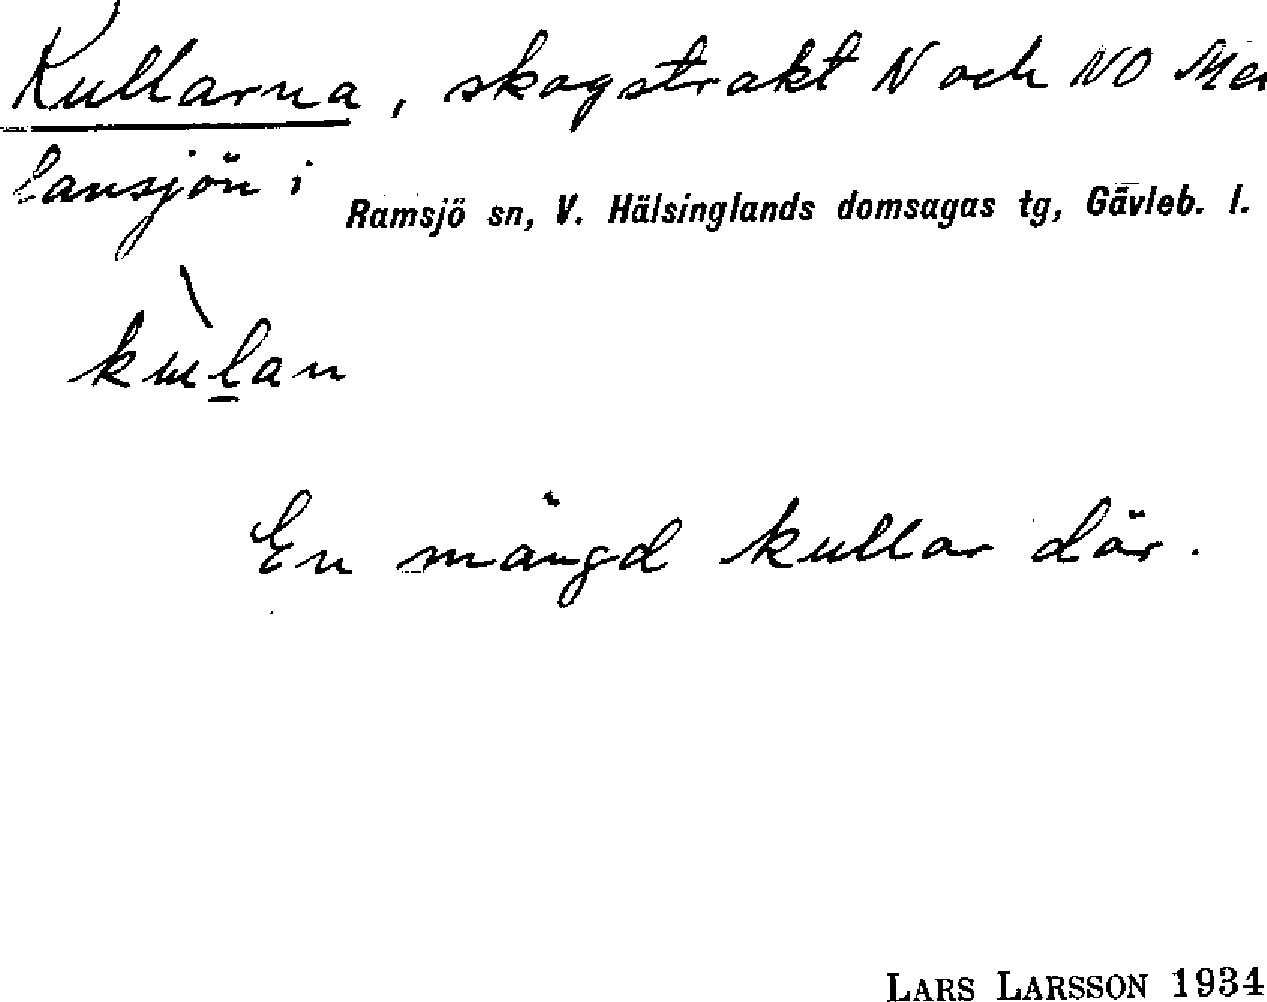 Kullarna, skogstrakt N och NO Me
lansjön i Ramsjö sn, V. Hälsinglands domsagas tg, Gävleb. l.
En mängd kullar där.
LARS LARSSON 1934